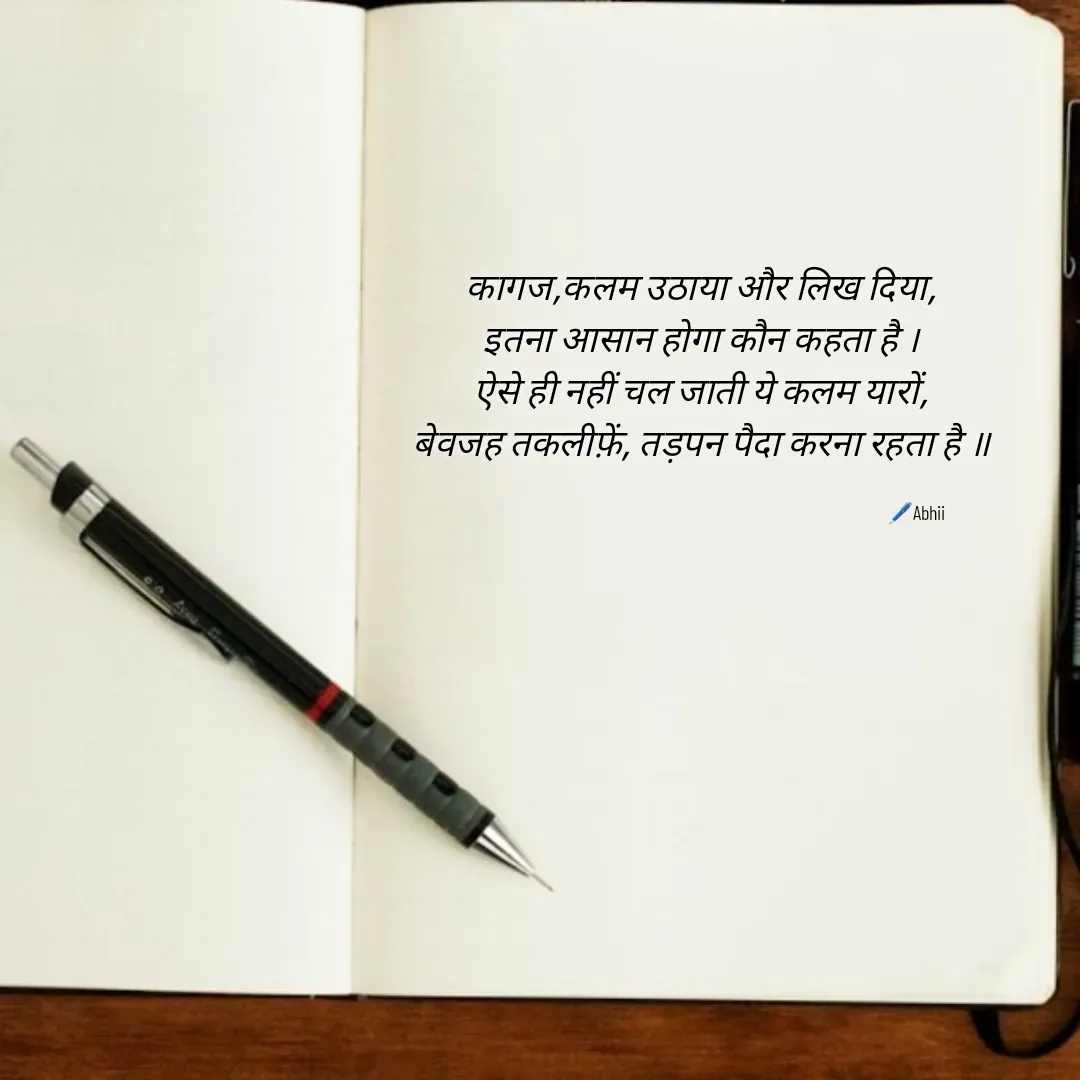 कागज,कलम उठाया और लिख दिया,
इतना आसान होगा कौन कहता है ।
ऐसे ही नहीं चल जाती ये कलम यारों,
बेवजह तकलीफ़ें, तड़पन पैदा करना रहता है ॥
🖊️Abhii